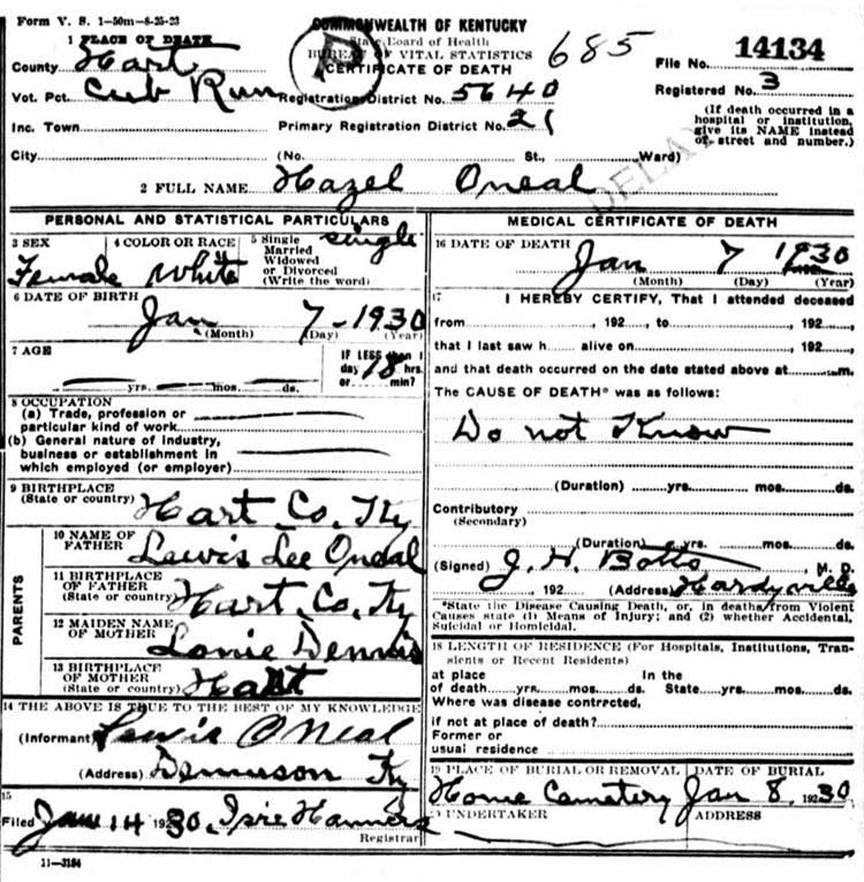 Form V. S. 1—50m—8-25-23
COMMONWEALTH OF KENTUCKY
State Board of Health
BUREAU OF VITAL STATISTICS
CERTIFICATE OF DEATH
685
File No. 14134
Registered No. 3
(If death occurred in a hospital or institution, give its NAME instead of street and number.)
1 PLACE OF DEATH
County Hart
Vot. Pct. Cub Run
Registration District No. 5640
Inc. Town
Primary Registration District No. 21
City
(No. St., Ward)
DELAY
2 FULL NAME Hazel Oneal
PERSONAL AND STATISTICAL PARTICULARS
3 SEX Female
4 COLOR OR RACE White
5 Single Married Widowed or Divorced (Write the word) single
6 DATE OF BIRTH
Jan 7 - 1930
(Month) (Day) (Year)
7 AGE
yrs. mos. ds.
IF LESS than 1 day 18 hrs. or min?
8 OCCUPATION
(a) Trade, profession or particular kind of work
(b) General nature of industry, business or establishment in which employed (or employer)
9 BIRTHPLACE (State or country) Hart Co. Ky
PARENTS
10 NAME OF FATHER Lewis Lee Oneal
11 BIRTHPLACE OF FATHER (State or country) Hart. Co. Ky
12 MAIDEN NAME OF MOTHER Lonie Dennis
13 BIRTHPLACE OF MOTHER (State or country) Hart
14 THE ABOVE IS TRUE TO THE BEST OF MY KNOWLEDGE
(Informant) Lewis ONeal
(Address) Ky
15
Filed Jan 14 1930.
Registrar
11—3184
MEDICAL CERTIFICATE OF DEATH
16 DATE OF DEATH
Jan 7 1930
(Month) (Day) (Year)
17 I HEREBY CERTIFY, That I attended deceased
from , 192 , to , 192 ,
that I last saw h alive on , 192 ,
and that death occurred on the date stated above at m.
The CAUSE OF DEATH* was as follows:
Do not Know
(Duration) yrs. mos. ds.
Contributory
(Secondary)
(Duration) yrs. mos. ds.
(Signed) J. H. Botts, M. D.
, 192 (Address) Hardyville
*State the Disease Causing Death, or, in deaths from Violent Causes state (1) Means of Injury; and (2) whether Accidental, Suicidal or Homicidal.
18 LENGTH OF RESIDENCE (For Hospitals, Institutions, Transients or Recent Residents)
at place of death yrs. mos. ds. In the State yrs. mos. ds.
Where was disease contracted,
if not at place of death?
Former or usual residence
19 PLACE OF BURIAL OR REMOVAL
Home Cemetery
DATE OF BURIAL
Jan 8, 1930
UNDERTAKER
ADDRESS